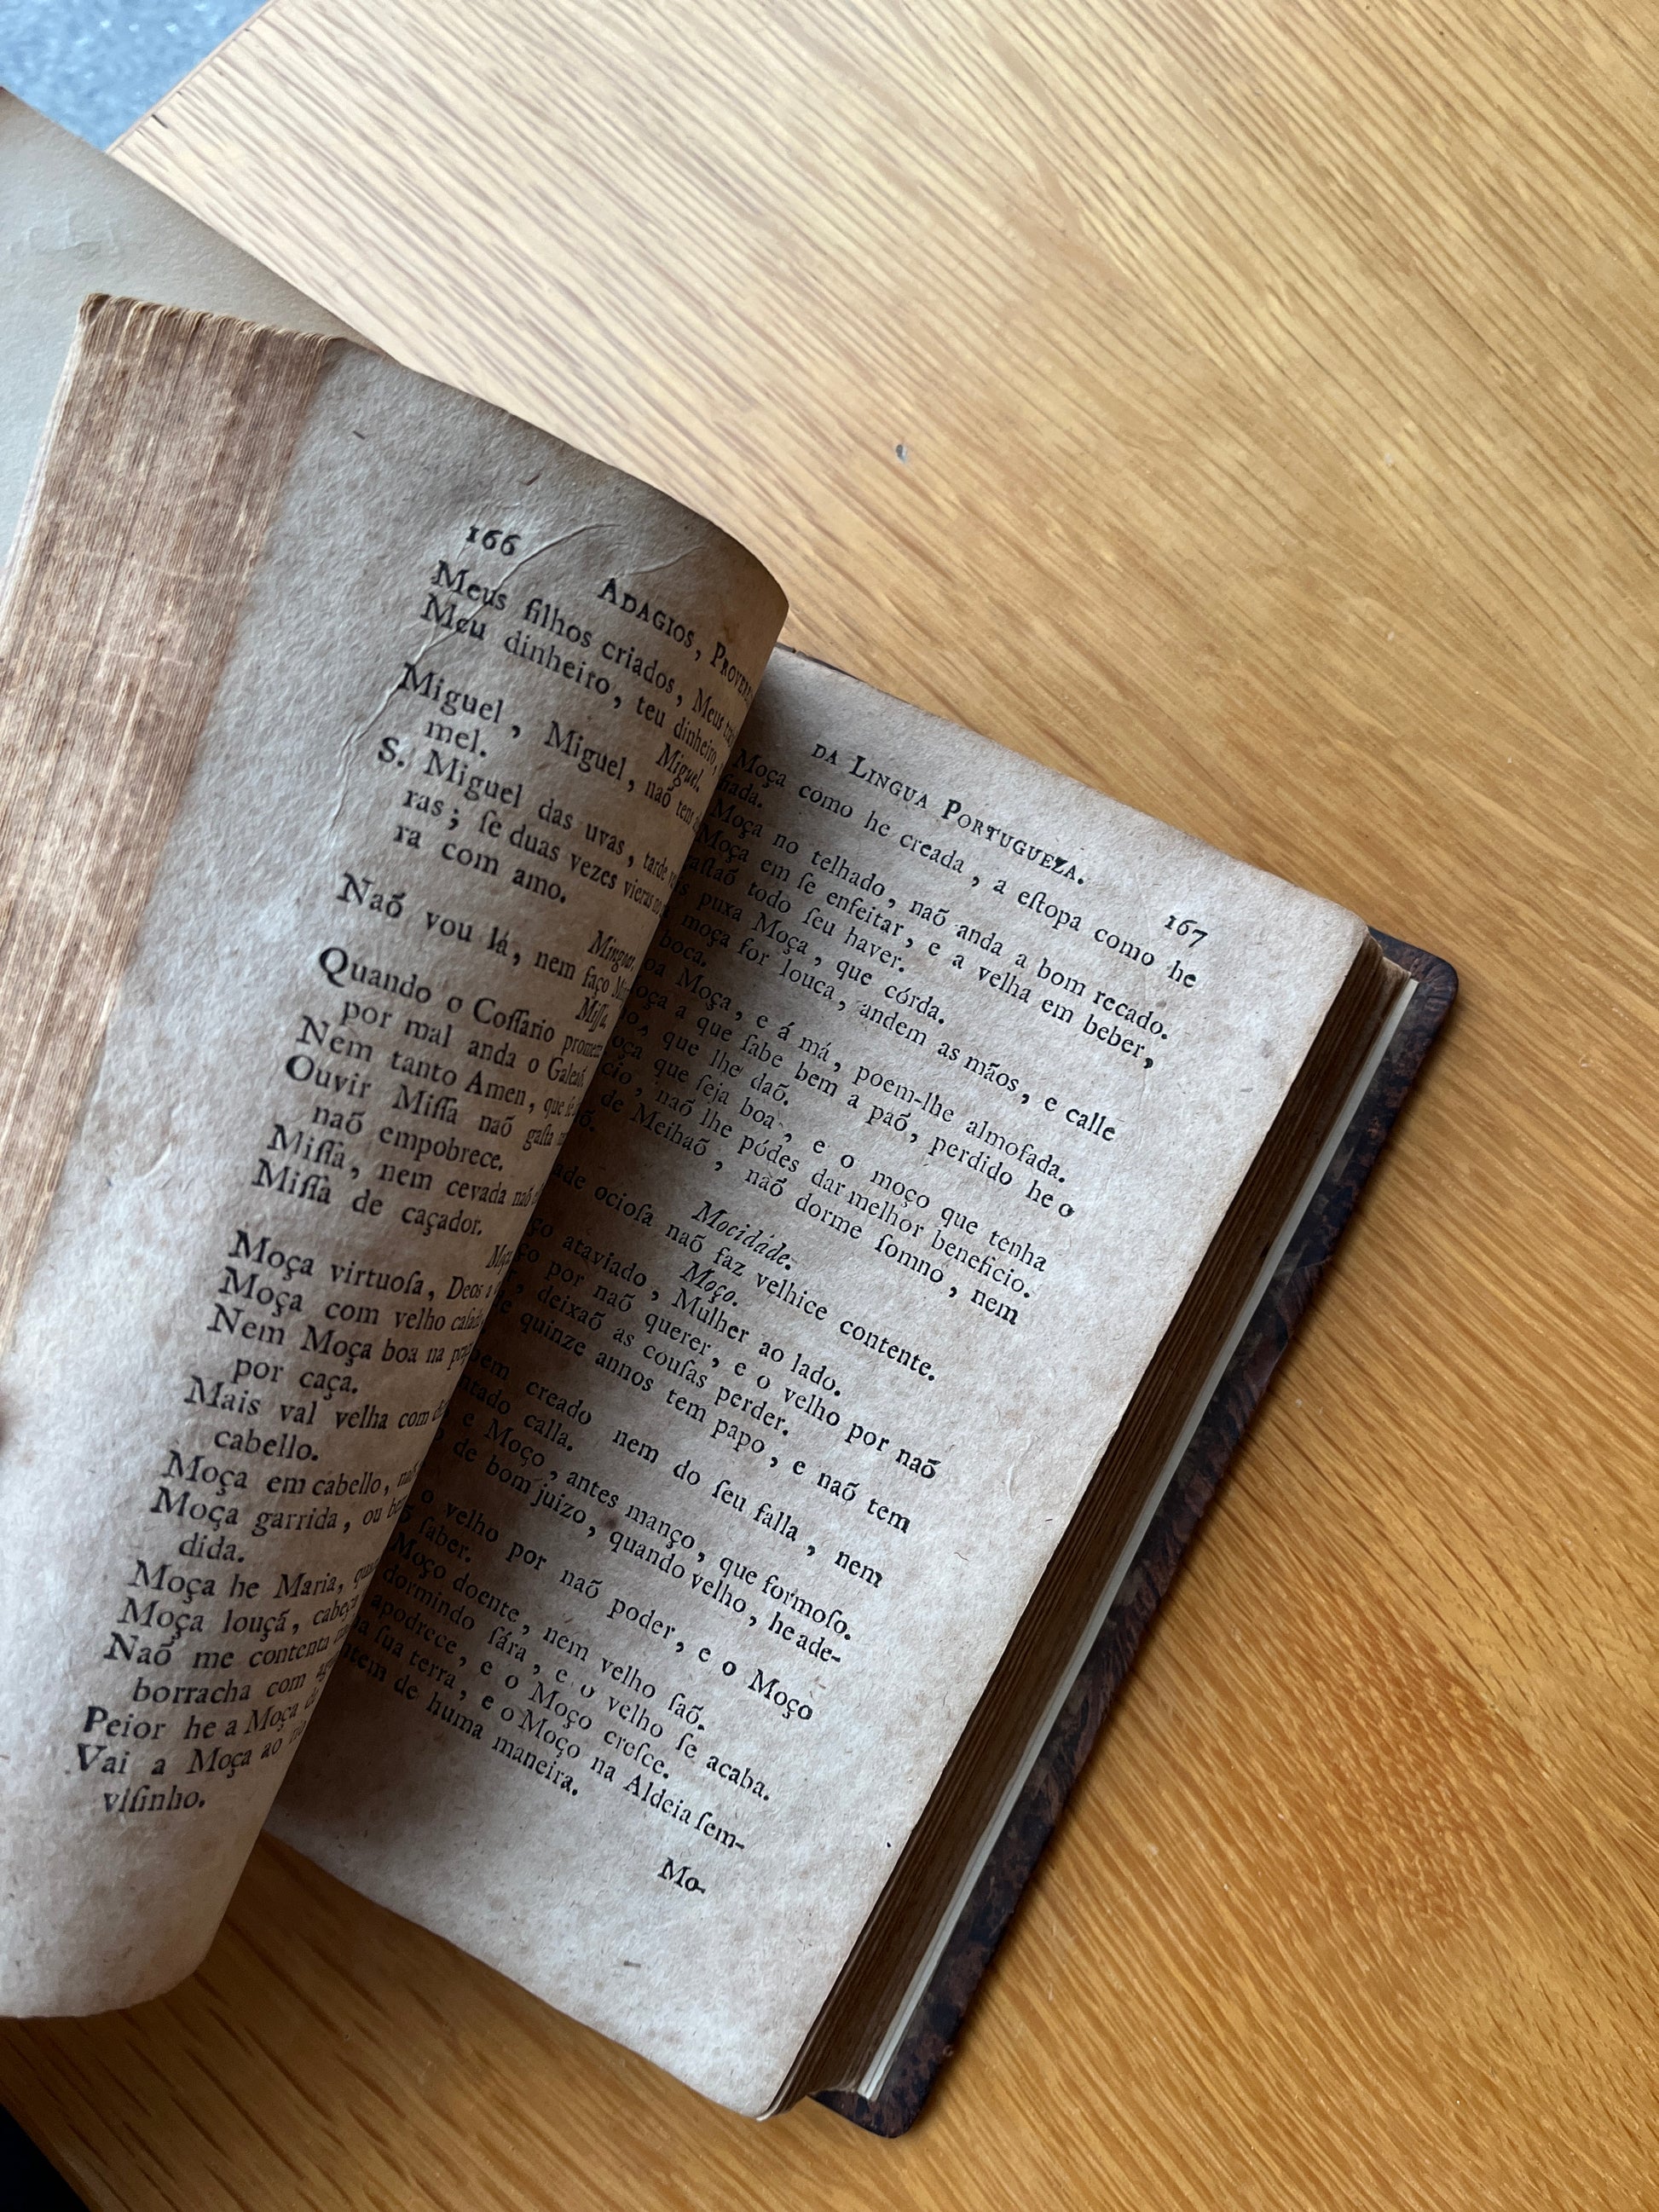 166
ADAGIOS, PROVERB
Meus filhos criados, Meus
Meu dinheiro, teu dinheiro,
Miguel.
Miguel, Miguel, naõ tens
mel.
S. Miguel das uvas, tarde
ras; ſe duas vezes vieras
ra com amo.
Mingua.
Naõ vou lá, nem faço
Miſſa.
Quando o Coſſario promete
por mal anda o Galeaõ.
Nem tanto Amen, que
Ouvir Miſſa naõ gaſta
naõ empobrece.
Miſſa, nem cevada naõ
Miſſa de caçador.
Moça
Moça virtuoſa, Deos a
Moça com velho caſada
Nem Moça boa na
por caça.
Mais val velha com
cabello.
Moça em cabello,
Moça garrida, ou
dida.
Moça he Maria,
Moça louçã, cabeça
Naõ me contenta
borracha com
Peior he a Moça
Vai a Moça ao
viſinho.
DA LINGUA PORTUGUEZA.
167
Moça como he creada, a eſtopa como he
fiada.
Moça no telhado, naõ anda a bom recado.
Moça em ſe enfeitar, e a velha em beber,
gaſtaõ todo ſeu haver.
puxa Moça, que córda.
moça for louca, andem as mãos, e calle
boca.
Moça, e á má, poem-lhe almofada.
a que ſabe bem a paõ, perdido he o
que lhe daõ.
que ſeja boa, e o moço que tenha
naõ lhe pódes dar melhor beneficio.
de Meihaõ, naõ dorme ſomno, nem
Mocidade.
ocioſa naõ faz velhice contente.
Moço.
ataviado, Mulher ao lado.
por naõ querer, e o velho por naõ
deixaõ as couſas perder.
quinze annos tem papo, e naõ tem
creado nem do ſeu falla, nem
calla.
e Moço, antes manço, que formoſo.
de bom juizo, quando velho, he ade-
o velho por naõ poder, e o Moço
ſaber.
Moço doente, nem velho ſaõ.
dormindo ſára, e o velho ſe acaba.
apodrece, e o Moço creſce.
ſua terra, e o Moço na Aldeia ſem-
de huma maneira.
Mo-